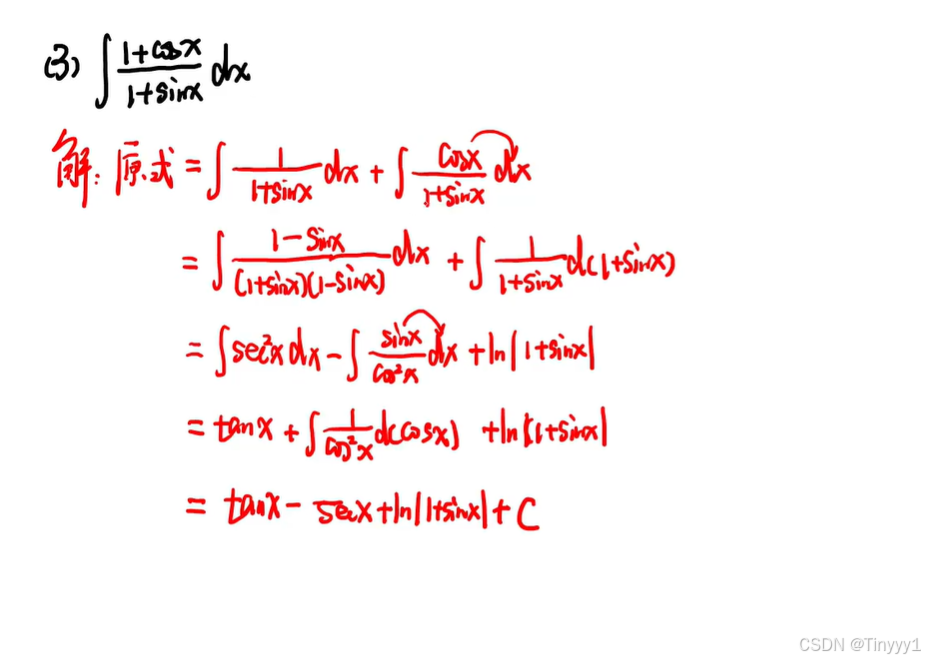 (3) ∫ (1+cosx)/(1+sinx) dx
解: 原式 = ∫ 1/(1+sinx) dx + ∫ cosx/(1+sinx) dx
= ∫ (1-sinx)/((1+sinx)(1-sinx)) dx + ∫ 1/(1+sinx) d(1+sinx)
= ∫ sec²x dx - ∫ sinx/cos²x dx + ln|1+sinx|
= tanx + ∫ 1/cos²x d(cosx) + ln|1+sinx|
= tanx - secx + ln|1+sinx| + C
CSDN @Tinyyy1